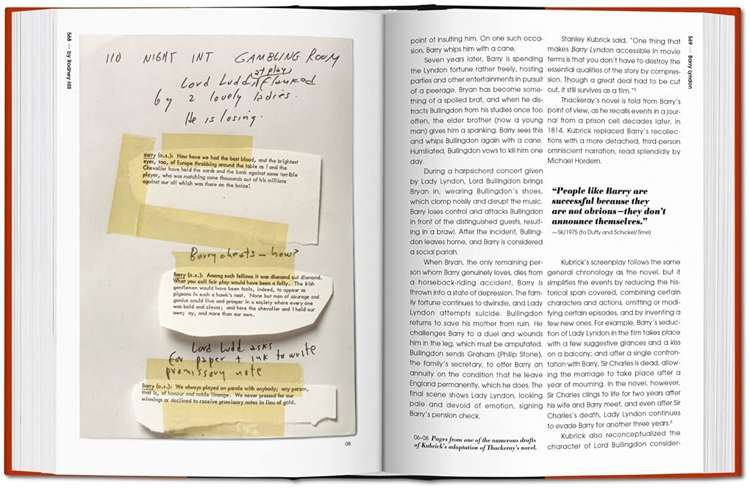 568 — by Rodney Hill
110 NIGHT INT GAMBLING ROOM
at play
Lord Ludd flanked
by 2 lovely ladies.
He is losing.
Barry (o.v.): Now have we had the best blood, and the brightest
eyes, too, of Europe throbbing around the table as I and the
Chevalier have held the cards and the bank against some terrible
player, who was matching some thousands out of his millions
against our all which was there on the baize!
Barry cheats - how?
Barry (o.v.): Among such fellows it was diamond cut diamond.
What you call fair play would have been a folly. The Irish
gentlemen would have been fools, indeed, to appear as
pigeons in such a hawk's nest. None but men of courage and
genius could live and prosper in a society where every one
was bold and clever; and here the chevalier and I held our
own; ay, and more than our own.
Lord Ludd asks
for paper + ink to write
promissory note
Barry (o.v.): We always played on parole with anybody; any person,
that is, of honour and noble lineage. We never pressed for our
winnings or declined to receive promissory notes in lieu of gold.
08
point of insulting him. On one such occa-
sion, Barry whips him with a cane.
Seven years later, Barry is spending
the Lyndon fortune rather freely, hosting
parties and other entertainments in pursuit
of a peerage. Bryan has become some-
thing of a spoiled brat, and when he dis-
tracts Bullingdon from his studies once too
often, the elder brother (now a young
man) gives him a spanking. Barry sees this
and whips Bullingdon again with a cane.
Humiliated, Bullingdon vows to kill him one
day.
During a harpsichord concert given
by Lady Lyndon, Lord Bullingdon brings
Bryan in, wearing Bullingdon's shoes,
which clomp noisily and disrupt the music.
Barry loses control and attacks Bullingdon
in front of the distinguished guests, result-
ing in a brawl. After the incident, Bulling-
don leaves home, and Barry is considered
a social pariah.
When Bryan, the only remaining per-
son whom Barry genuinely loves, dies from
a horseback-riding accident, Barry is
thrown into a state of depression. The fam-
ily fortune continues to dwindle, and Lady
Lyndon attempts suicide. Bullingdon
returns to save his mother from ruin. He
challenges Barry to a duel and wounds
him in the leg, which must be amputated.
Bullingdon sends Graham (Philip Stone),
the family's secretary, to offer Barry an
annuity on the condition that he leave
England permanently, which he does. The
final scene shows Lady Lyndon, looking
pale and devoid of emotion, signing
Barry's pension check.
06–08 Pages from one of the numerous drafts
of Kubrick's adaptation of Thackeray's novel.
Stanley Kubrick said, "One thing that
makes Barry Lyndon accessible in movie
terms is that you don't have to destroy the
essential qualities of the story by compres-
sion. Though a great deal had to be cut
out, it still survives as a film."
Thackeray's novel is told from Barry's
point of view, as he recalls events in a jour-
nal from a prison cell decades later, in
1814. Kubrick replaced Barry's recollec-
tions with a more detached, third-person
omniscient narration, read splendidly by
Michael Hordern.
"People like Barry are
successful because they
are not obvious—they don't
announce themselves."
—SK/1975 (to Duffy and Schickel/Time)
Kubrick's screenplay follows the same
general chronology as the novel, but it
simplifies the events by reducing the his-
torical span covered, combining certain
characters and actions, omitting or modi-
fying certain episodes, and by inventing a
few new ones. For example, Barry's seduc-
tion of Lady Lyndon in the film takes place
with a few suggestive glances and a kiss
on a balcony; and after a single confron-
tation with Barry, Sir Charles is dead, allow-
ing the marriage to take place after a
year of mourning. In the novel, however,
Sir Charles clings to life for two years after
his wife and Barry meet, and even after Sir
Charles's death, Lady Lyndon continues
to evade Barry for another three years.
Kubrick also reconceptualized the
character of Lord Bullingdon consider-
569 — Barry Lyndon